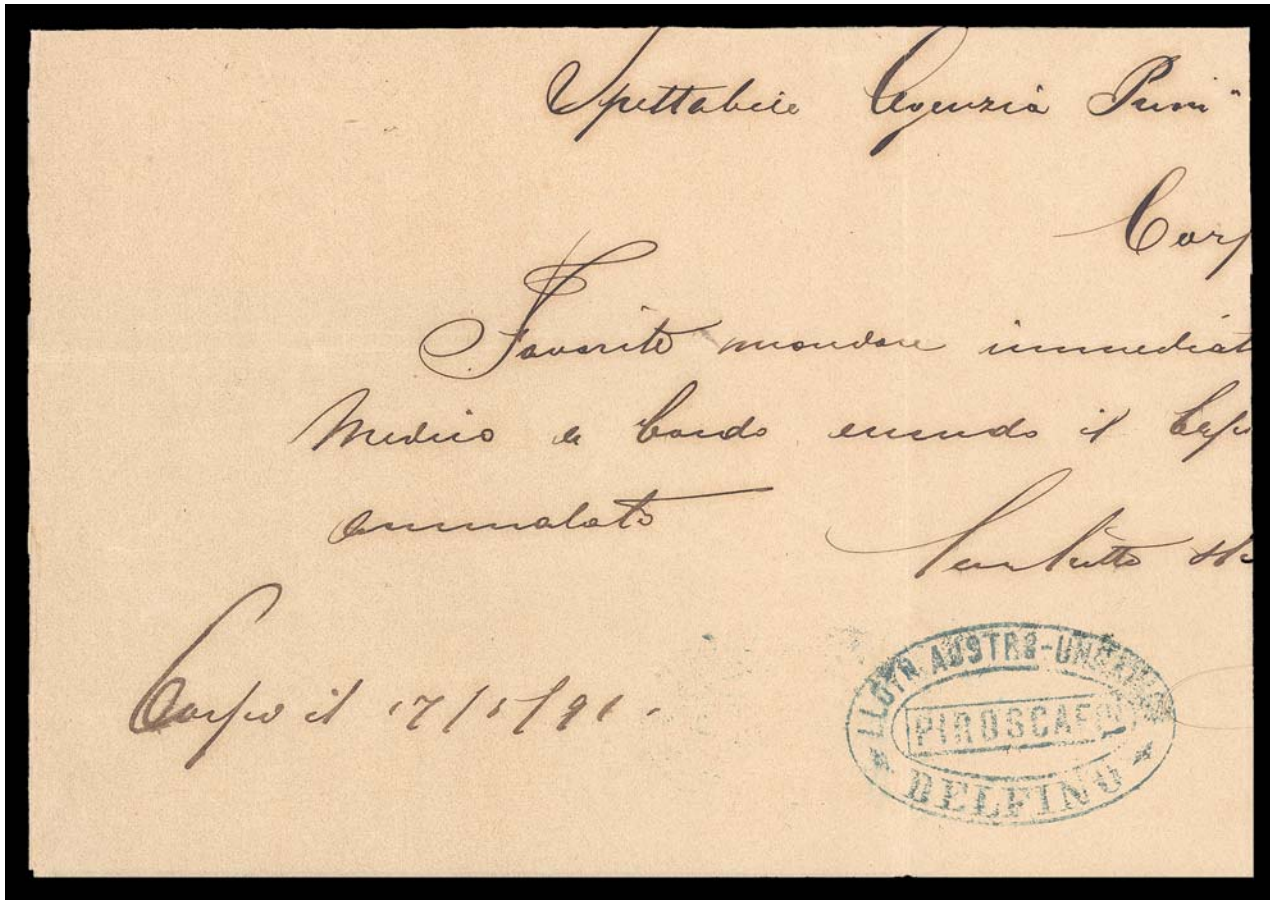 Spettabile Agenzia
Corf
Favorite mandare immediat
Medico a bordo essendo il
ammalato
Corfu il 17/5/91.
LLOYD AUSTRO-UNGARICO
PIROSCAFO
DELFINO